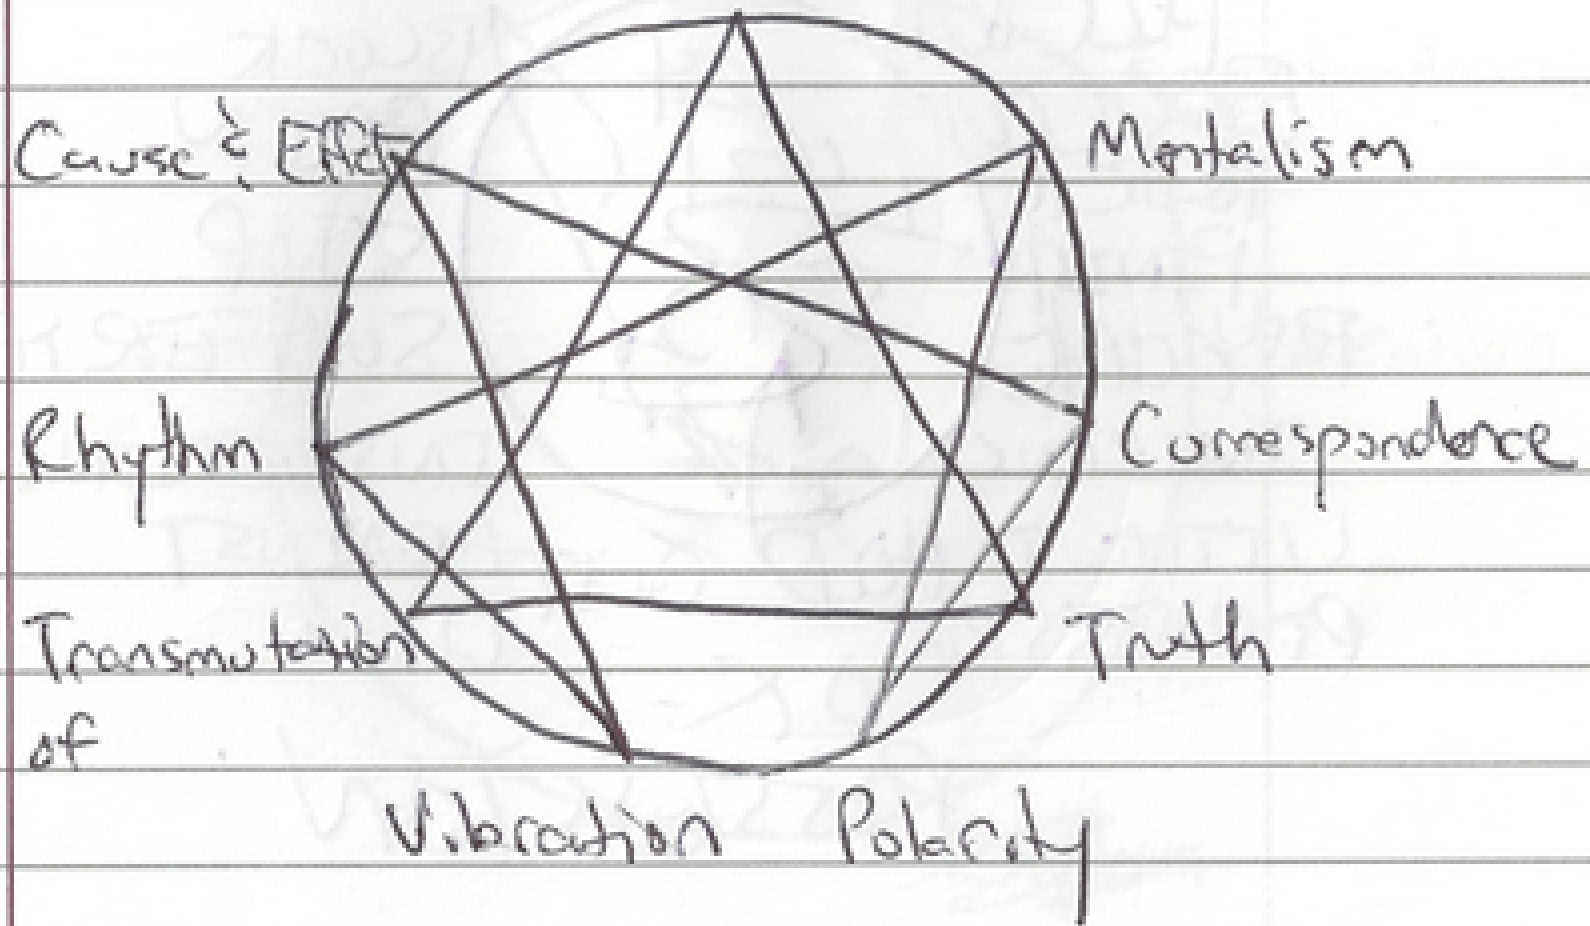 Cause & Effect
Mentalism
Rhythm
Correspondence
Transmutation
of
Truth
Vibration
Polarity